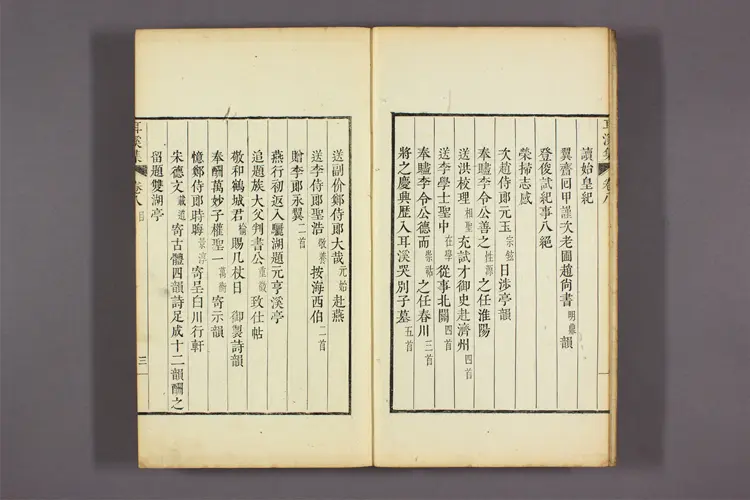 耳溪集 卷八
讀始皇紀
翼齋回甲謹次老圃趙尙書明鼎韻
登俊試紀事八絕
榮掃志感
次趙侍郎元玉宗鉉日涉亭韻
奉贐李令公善之性源之任淮陽
送洪校理相聖充試才御史赴濟州四首
送李學士聖中在學從事北關四首
奉贐李令公德而崇祜之任春川三首
將之慶興歷入耳溪哭別子墓五首
送副价鄭侍郎大哉元始赴燕
送李侍郎聖浩敬養按海西伯二首
贈李郎永翼二首
燕行初返入驪湖題元亨溪亭
追題族大父判書公重徵致仕帖
敬和鶴城君楡賜几杖日 御製詩韻
奉酬萬妙子權聖一萬衡寄示韻
憶鄭侍郎時晦景淳寄呈白川行軒
宋德文載道寄古體四韻詩足成十二韻酬之
留題雙湖亭
耳溪集 卷八目 三